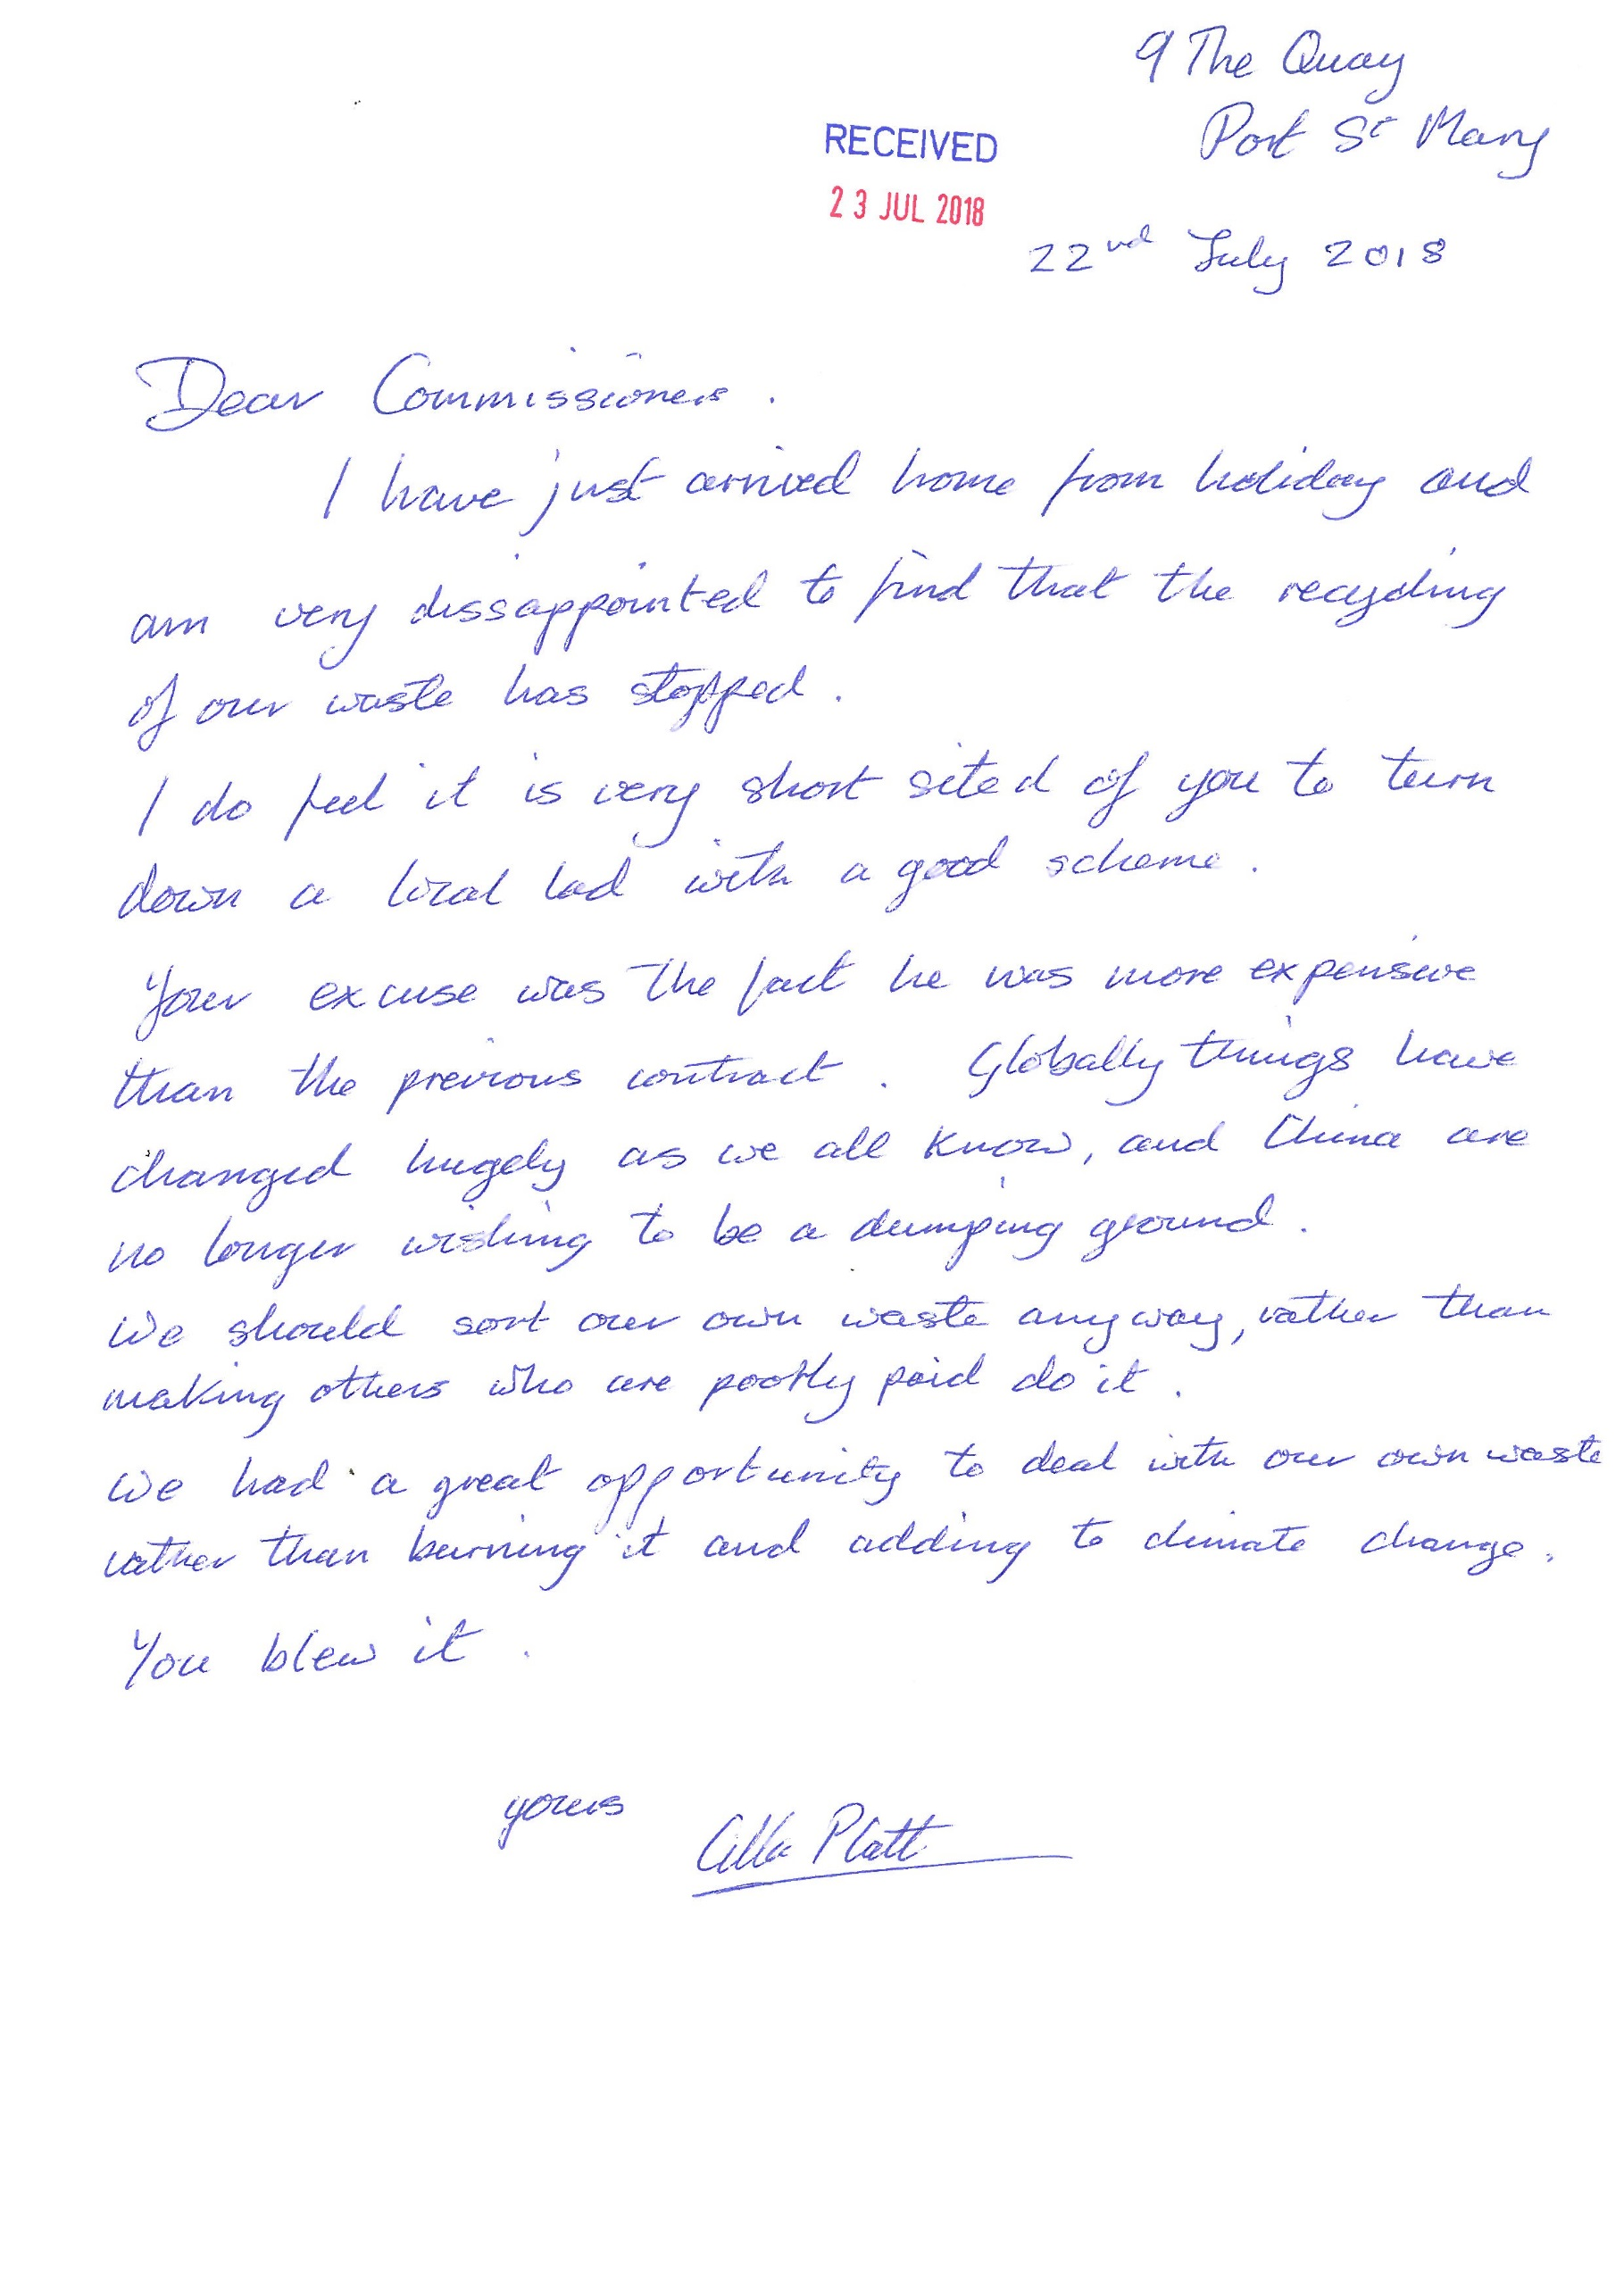 9 The Quay
Port St Mary
RECEIVED
23 JUL 2018
22nd July 2018
Dear Commissioners.
I have just arrived home from holiday and
am very dissappointed to find that the recycling
of our waste has stopped.
I do feel it is very short sited of you to turn
down a local lad with a good scheme.
Your excuse was the fact he was more expensive
than the previous contract. Globally things have
changed hugely as we all know, and China are
no longer wishing to be a dumping ground.
We should sort our own waste anyway, rather than
making others who are poorly paid do it.
We had a great opportunity to deal with our own waste
rather than burning it and adding to climate change.
You blew it.
yours
Cilla Platt